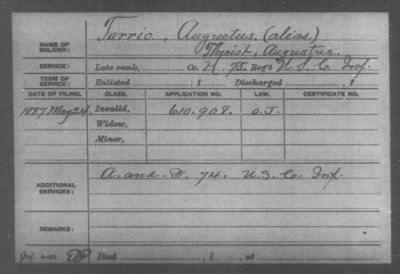 Tarrio, Augustus, (alias)
NAME OF SOLDIER: Thriot, Augustus.
SERVICE: Late rank, Co. H, 75 Reg't U.S.C. Inf.
TERM OF SERVICE: Enlisted , 1 Discharged , 1
DATE OF FILING. CLASS. APPLICATION NO. LAW. CERTIFICATE NO.
1887 May 24. Invalid, 610.908. O.J.
Widow,
Minor,
ADDITIONAL SERVICES: A. and D. 74. U.S.C. Inf.
REMARKS:
Died , 1 , at